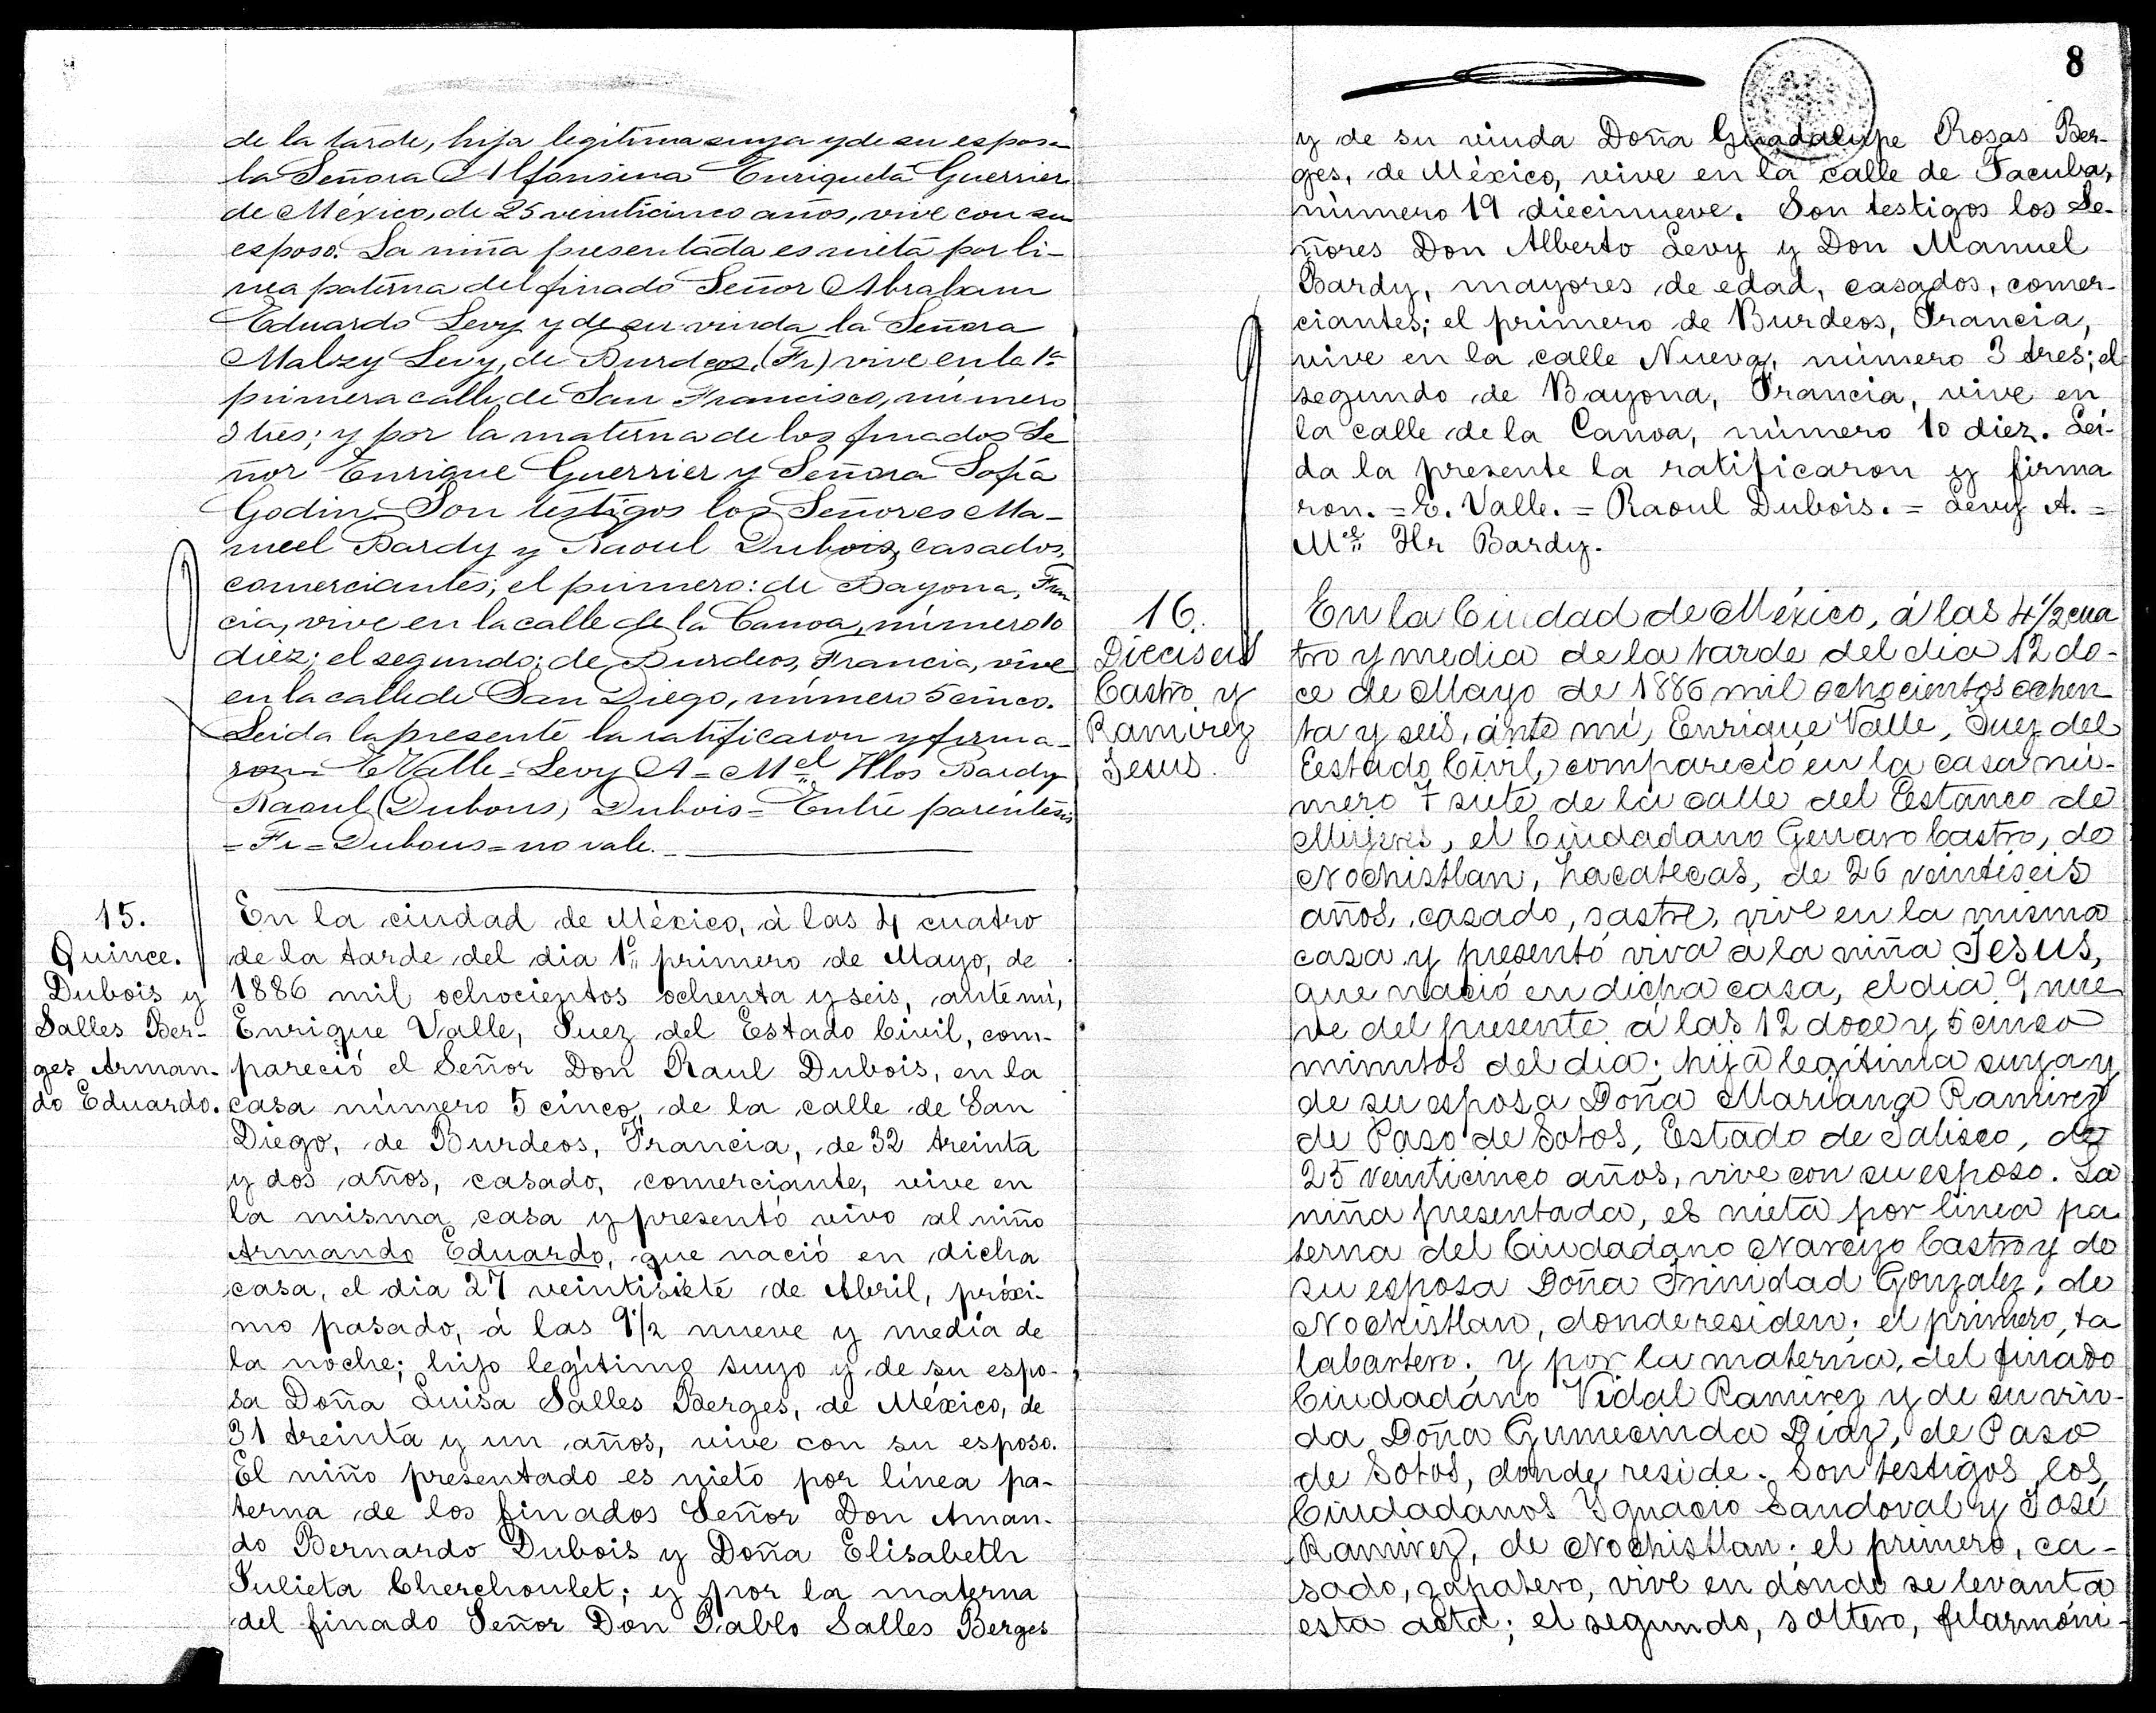 de la tarde, hija legitima suya y de su esposa
la Señora Alfonsina Enriqueta Guerrier
de México, de 25 veinticinco años, vive con su
esposo. La niña presentada es nieta por li-
nea paterna del finado Señor Abraham
Eduardo Levy y de su viuda la Señora
Malzy Levy, de Burdeos, (Fr) vive en la 1ª
primera calle de San Francisco, número
3 tres; y por la materna de los finados Se
ñor Enrique Guerrier y Señora Sofía
Godin. Son testigos los Señores Ma-
nuel Bardy y Raoul Dubois, casados,
comerciantes; el primero: de Bayona, Fran
cia, vive en la calle de la Canoa, número 10
diez; el segundo: de Burdeos, Francia, vive
en la calle de San Diego, número 5 cinco.
Leida la presente la ratificaron y firma-
ron = E Valle = Levy A = Mel Hlos Bardy
Raoul (Dubous) Dubois = Entre paréntesis
= Fr = Dubous = no vale.
15.
Quince.
Dubois y
Salles Ber-
ges Arman-
do Eduardo.
En la ciudad de México, á las 4 cuatro
de la tarde del dia 1º primero de Mayo, de
1886 mil ochocientos ochenta y seis, ante mi,
Enrique Valle, Juez del Estado Civil, com-
pareció el Señor Don Raul Dubois, en la
casa número 5 cinco de la calle de San
Diego, de Burdeos, Francia, de 32 treinta
y dos años, casado, comerciante, vive en
la misma casa y presentó vivo al niño
Armando Eduardo, que nació en dicha
casa, el dia 27 veintisiete de Abril, próxi-
mo pasado, á las 9 1/2 nueve y media de
la noche; hijo legítimo suyo y de su espo-
sa Doña Luisa Salles Berges, de México, de
31 treinta y un años, vive con su esposo.
El niño presentado es nieto por línea pa-
terna de los finados Señor Don Aman-
do Bernardo Dubois y Doña Elisabeth
Julieta Cherchoulet; y por la materna
del finado Señor Don Pablo Salles Berges
8
y de su viuda Doña Guadalupe Rosas Ber-
ges, de México, vive en la calle de Tacuba,
número 19 diecinueve. Son testigos los Se-
ñores Don Alberto Levy y Don Manuel
Bardy, mayores de edad, casados, comer-
ciantes; el primero de Burdeos, Francia,
vive en la calle Nueva, número 3 tres; el
segundo de Bayona, Francia, vive en
la calle de la Canoa, número 10 diez. Leí-
da la presente la ratificaron y firma
ron. = E. Valle. = Raoul Dubois. = Levy A. =
Mel Hr Bardy.
16.
Dieciseis
Castro y
Ramirez
Jesus.
En la Ciudad de México, á las 4 1/2 cua
tro y media de la tarde del dia 12 do-
ce de Mayo de 1886 mil ochocientos ochen
ta y seis, ante mi, Enrique Valle, Juez del
Estado Civil, compareció en la casa nú-
mero 7 siete de la calle del Estanco de
Mujeres, el Ciudadano Genaro Castro, de
Nochistlan, Zacatecas, de 26 veintiseis
años, casado, sastre, vive en la misma
casa y presentó viva á la niña Jesus,
que nació en dicha casa, el dia 9 nue
ve del presente á las 12 doce y 5 cinco
minutos del dia; hija legítima suya y
de su esposa Doña Mariana Ramirez
de Paso de Sotos, Estado de Jalisco, de
25 veinticinco años, vive con su esposo. La
niña presentada, es nieta por linea pa
terna del Ciudadano Narcizo Castro y de
su esposa Doña Trinidad Gonzalez, de
Nochistlan, donde residen; el primero, ta
labartero; y por la materna, del finado
Ciudadáno Vidal Ramirez y de su viu-
da Doña Gumecinda Diaz, de Paso
de Sotos, donde reside. Son testigos los
Ciudadanos Ygnacio Sandoval y José
Ramirez, de Nochistlan; el primero, ca-
sado, zapatero, vive en dónde se levanta
esta acta; el segundo, soltero, filarmóni-